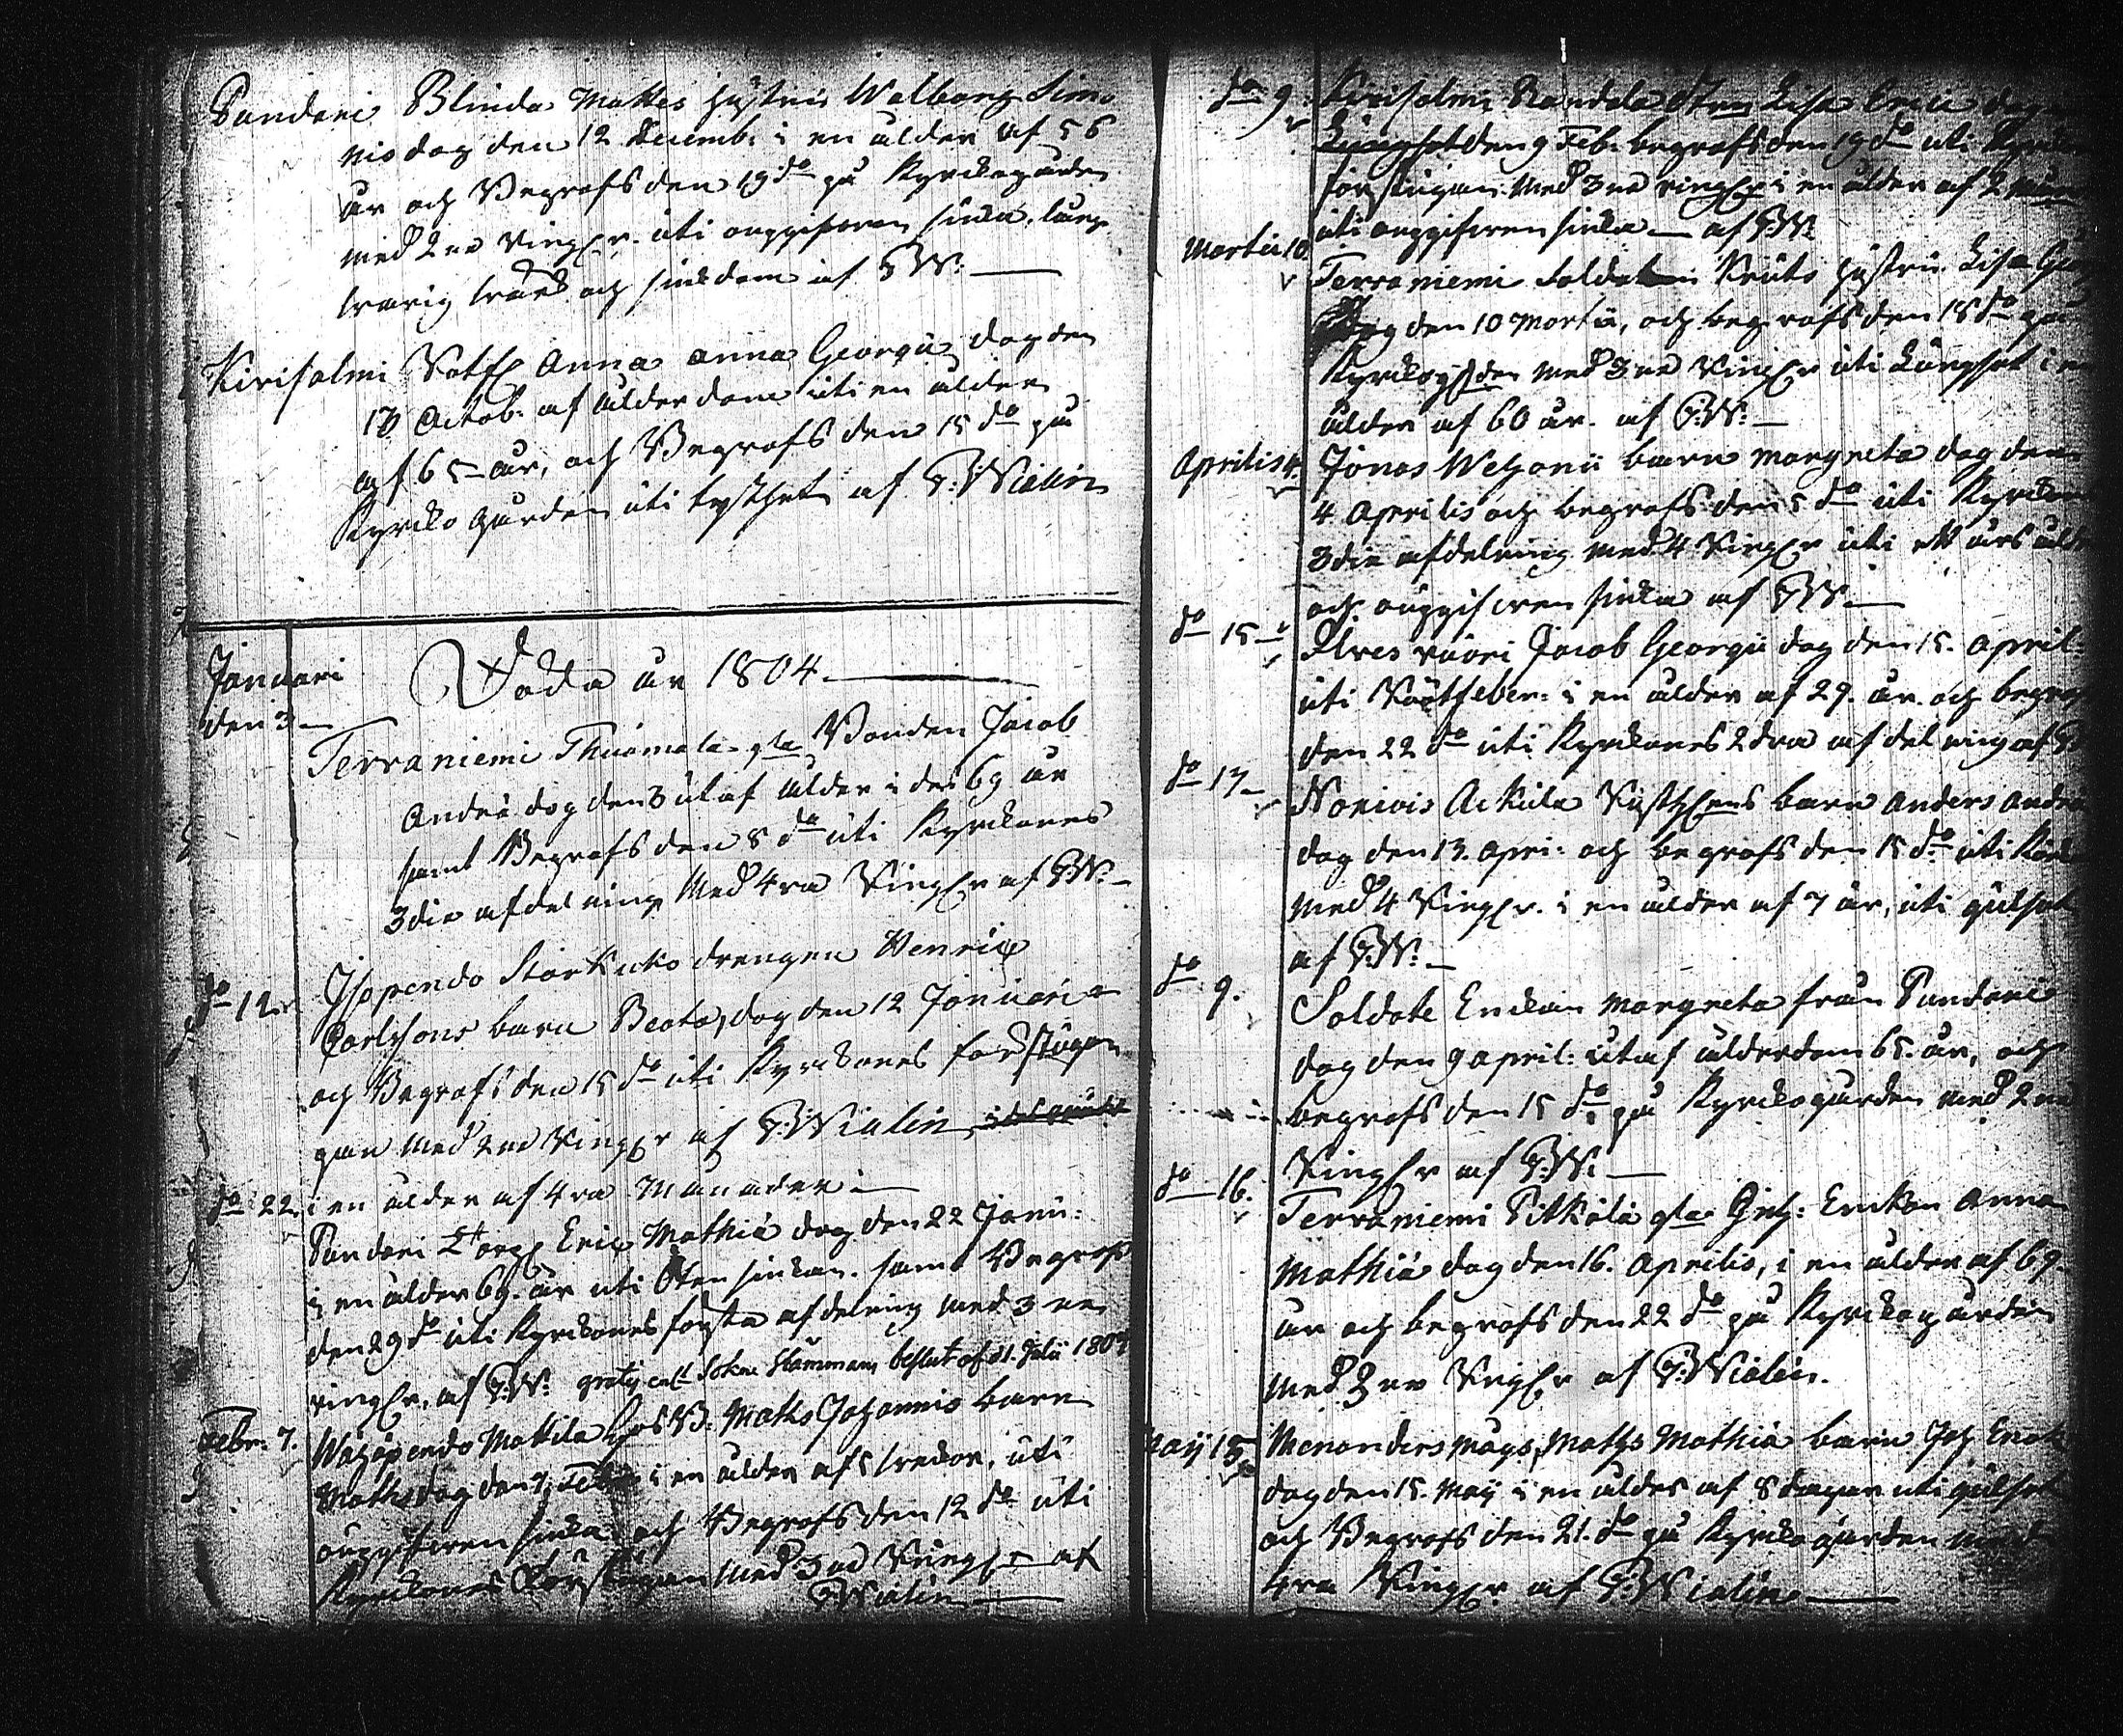 Pundari Blinda Mattes hustru Walborg Simo
nis dog den 12 Decemb: i en ålder af 56
år och Begrofs den 19 do på Kyrckogården
med 2ne Ring:r uti ouppgifven siuka, lång
warig wärk och siukdom af G:W:
Kirisalmi Rotf: Anna Georgii dog den
Octob: af ålderdom uti en ålder
af 65 år, och Begrofs den 15 do på
Kyrcko gården uti tysthet af G:Wialin
Januari Döda år 1804
den 3
Terraniemi Thuomala Bonden Jacob
Andreæ dog den 3 utaf ålder i des 69 år
samt Begrofs den 8 do uti Kyrckones
3die afdelning Med 4ra Ring:r af G:W:
do 12 Isopendo Storkuko drengen Henric
Carlsons barn Beata, dog den 12 Januari
och Begrofs den 15 do uti Kyrckones förstugan
gan med 2ne Ring:r af G:Wialin
i en ålder af 4ra Månader
do 22. Pundari Eric Mathiæ dog den 22 Janu:
i en ålder 69. år uti siukan. samt Begrofs
den 29 do uti Kyrckones första afdelning med 3ne
ring:r, af G:W: Sokne Stämmans beslut af d 1. Julii
Febr: 7. Wähäpendo Mattila Maths Johannis barn
Maths dog den 7. Feb: i en ålder af 5 weckor, uti
ouppgifven siuka och Begrofs den 12 do uti
Kyrckones Förstugan med 3ne Ring:r af
G:Wialin
do 9 Kirisalmi Lisa Erici dog
den 9 Feb: begrofs den 19 do uti Kyrcko
förstugan. Med 3ne ring:r i en ålder af 2
uti ouppgifven siuka af G:W:
Martii 10 Terraniemi Soldaten Knuts hustru Lisa
dog den 10 Martii, och begrofs den 18 do på
Kyrckog:den med 3ne Ring:r uti Lungsot i en
ålder af 60 år. af G:W:
Aprilis 4. Jonas barn Margreta dog den
4 Aprilis och begrofs den 5 do uti Kyrckones
3die afdelning med 4 Ring:r uti ett års ålder
och ouppgifven siuka af G:W:
do 15 Jacob Georgii dog den 15. April:
uti Rötfeber: i en ålder af 29. år. och begrofs
den 22 do uti Kyrckones 2dra afdelning af
do 13 Norivis Ackula barn Anders Andreæ
dog den 13. Apri: och begrofs den 15 do uti
med 4 Ring:r. i en ålder af 7 år, uti gulsot
af G:W:
do 9. Soldate Enckan Margreta från Pundari
dog den 9 April: utaf ålderdom 65. år, och
begrofs den 15 do på Kyrckogården med 2ne
Ring:r af G:W:
do 16. Terraniemi Pitkälä Enckan Anna
Mathiæ dog den 16. Aprilis, i en ålder af 69.
år och begrofs den 22 do på Kyrckogården
med 3ne Ring:r af G:Wialin.
Maij 15 Menanders mågs, Maths Mathiæ barn
dog den 15. Maij i en ålder af 8 dagar uti gulsot
och Begrofs den 21. do på Kyrckogården med
4ra Ring:r af G:Wialin